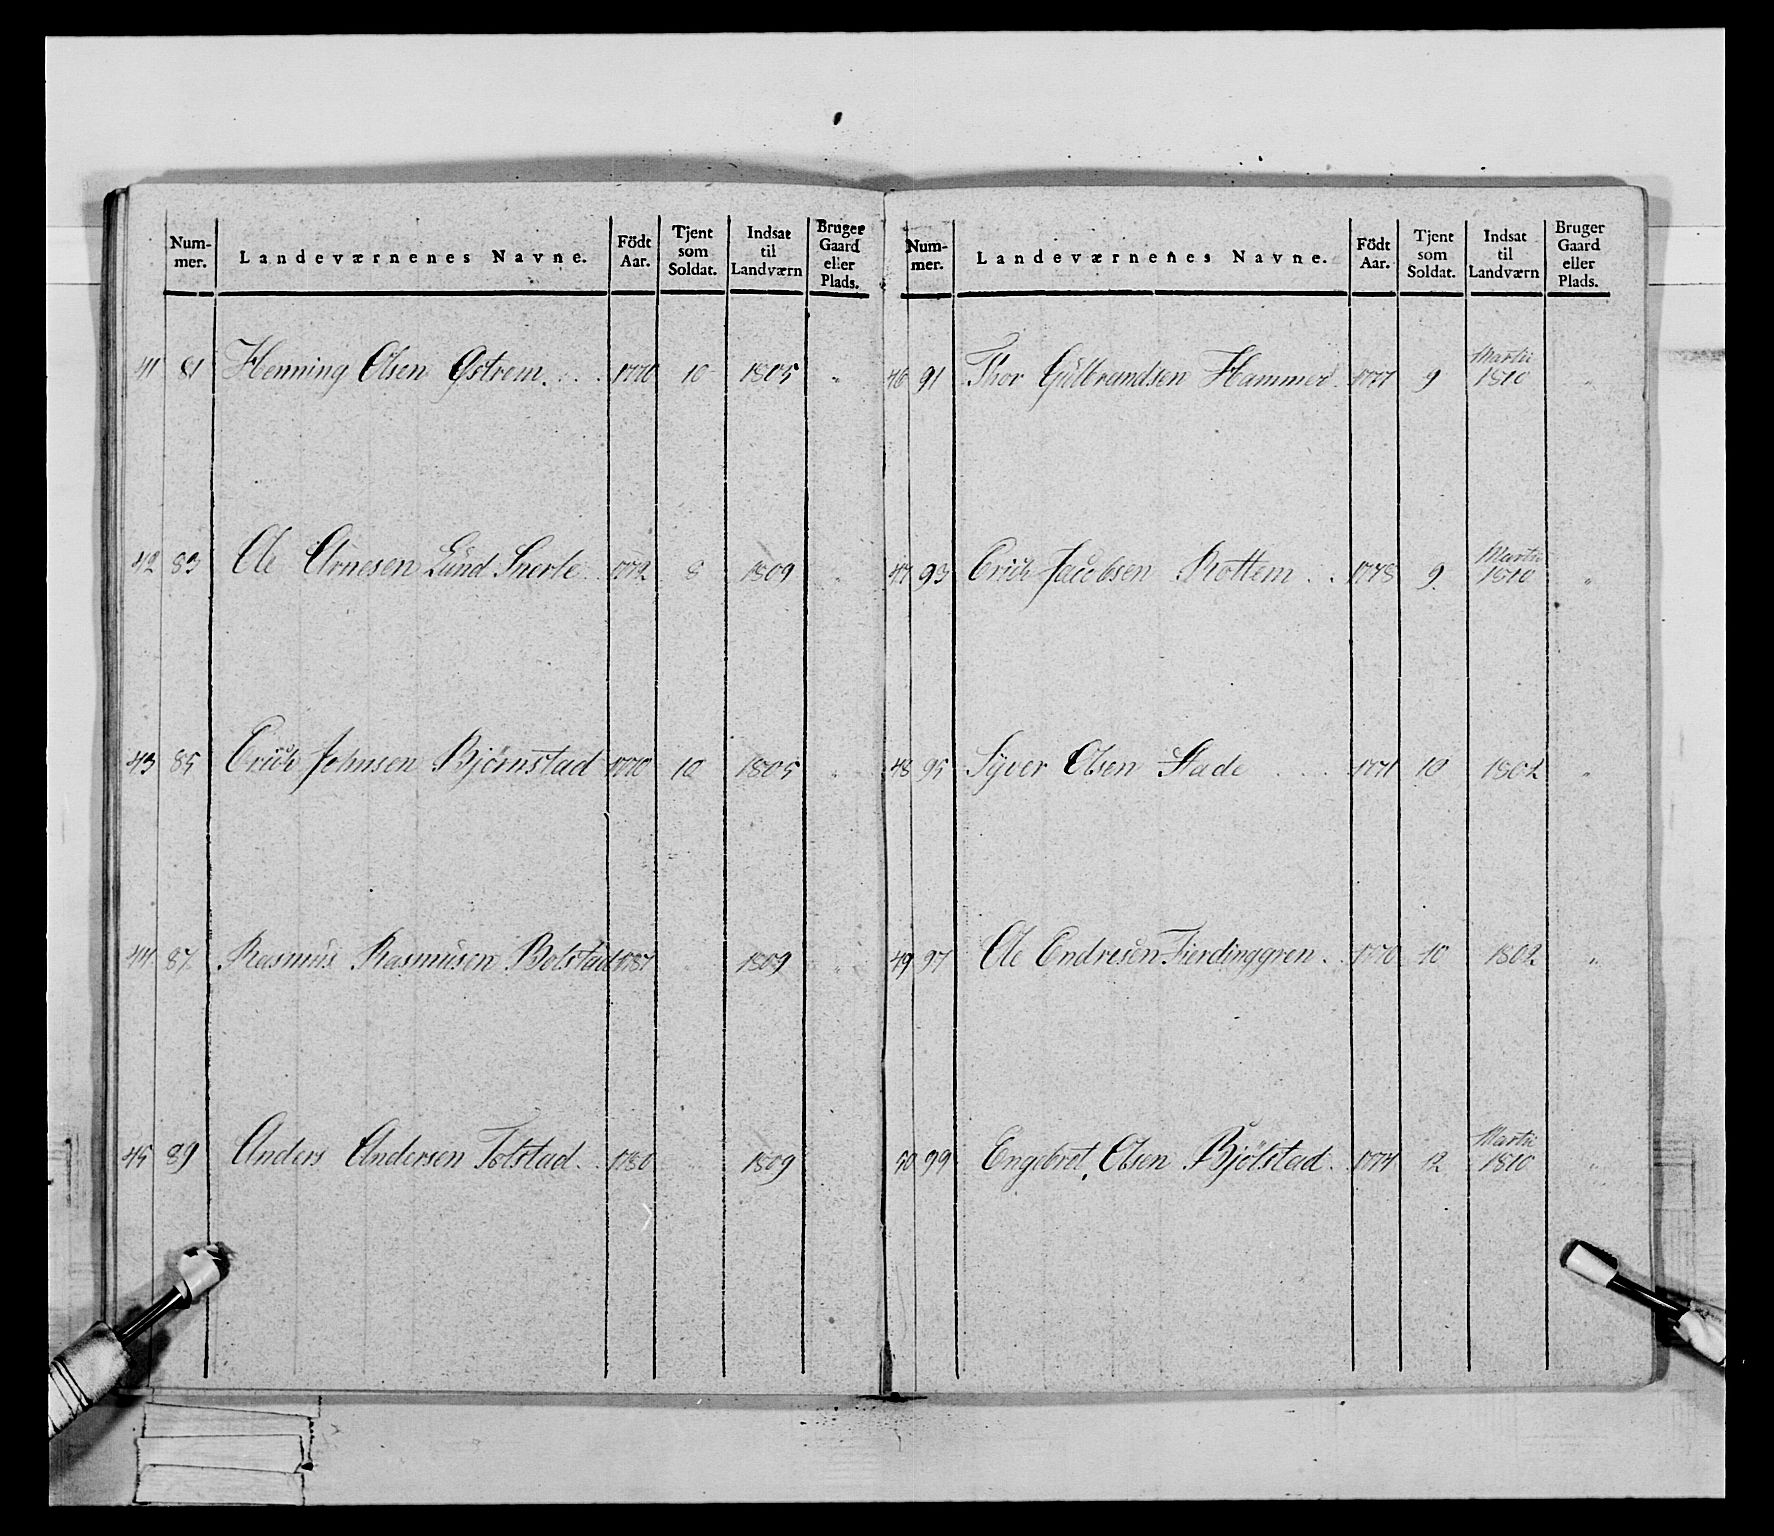 Num-
mer.
Landeværnenes Navne.
Födt
Aar.
Tjent
som
Soldat.
Indsat
til
Landværn
Bruger
Gaard
eller
Plads.
41 81 Henning Olsen Østrem. . . 10 1805 "
42 83 Ole Arnesen Lund Snerle . 1772 8 1809 "
43 85 Erich Johnsen Bjørnstad 1770 10 1805 "
44 87. Rasmus Rasmusen Bolstad 1787 " 1809 "
45 89 Anders Andersen Tolstad. . 1780 1809
Num-
mer.
Landeværnenes Navne.
Födt
Aar.
Tjent
som
Soldat.
Indsat
til
Landværn
Bruger
Gaard
eller
Plads.
46 91 Thor Gulbrandsen Hammer. 1777 9 Martii
1810 "
47 93 Erich Jacobsen Rottem . . 1778 9 Martii
1810 "
48 95 Syver Olsen Stade . . . 1771 10 1802 "
49 97 Ole Endresen Fierdinggren . 1770 10 1802 "
50 99 Engebret Olsen Bjölstad. 1774 12 Martii
1810 "